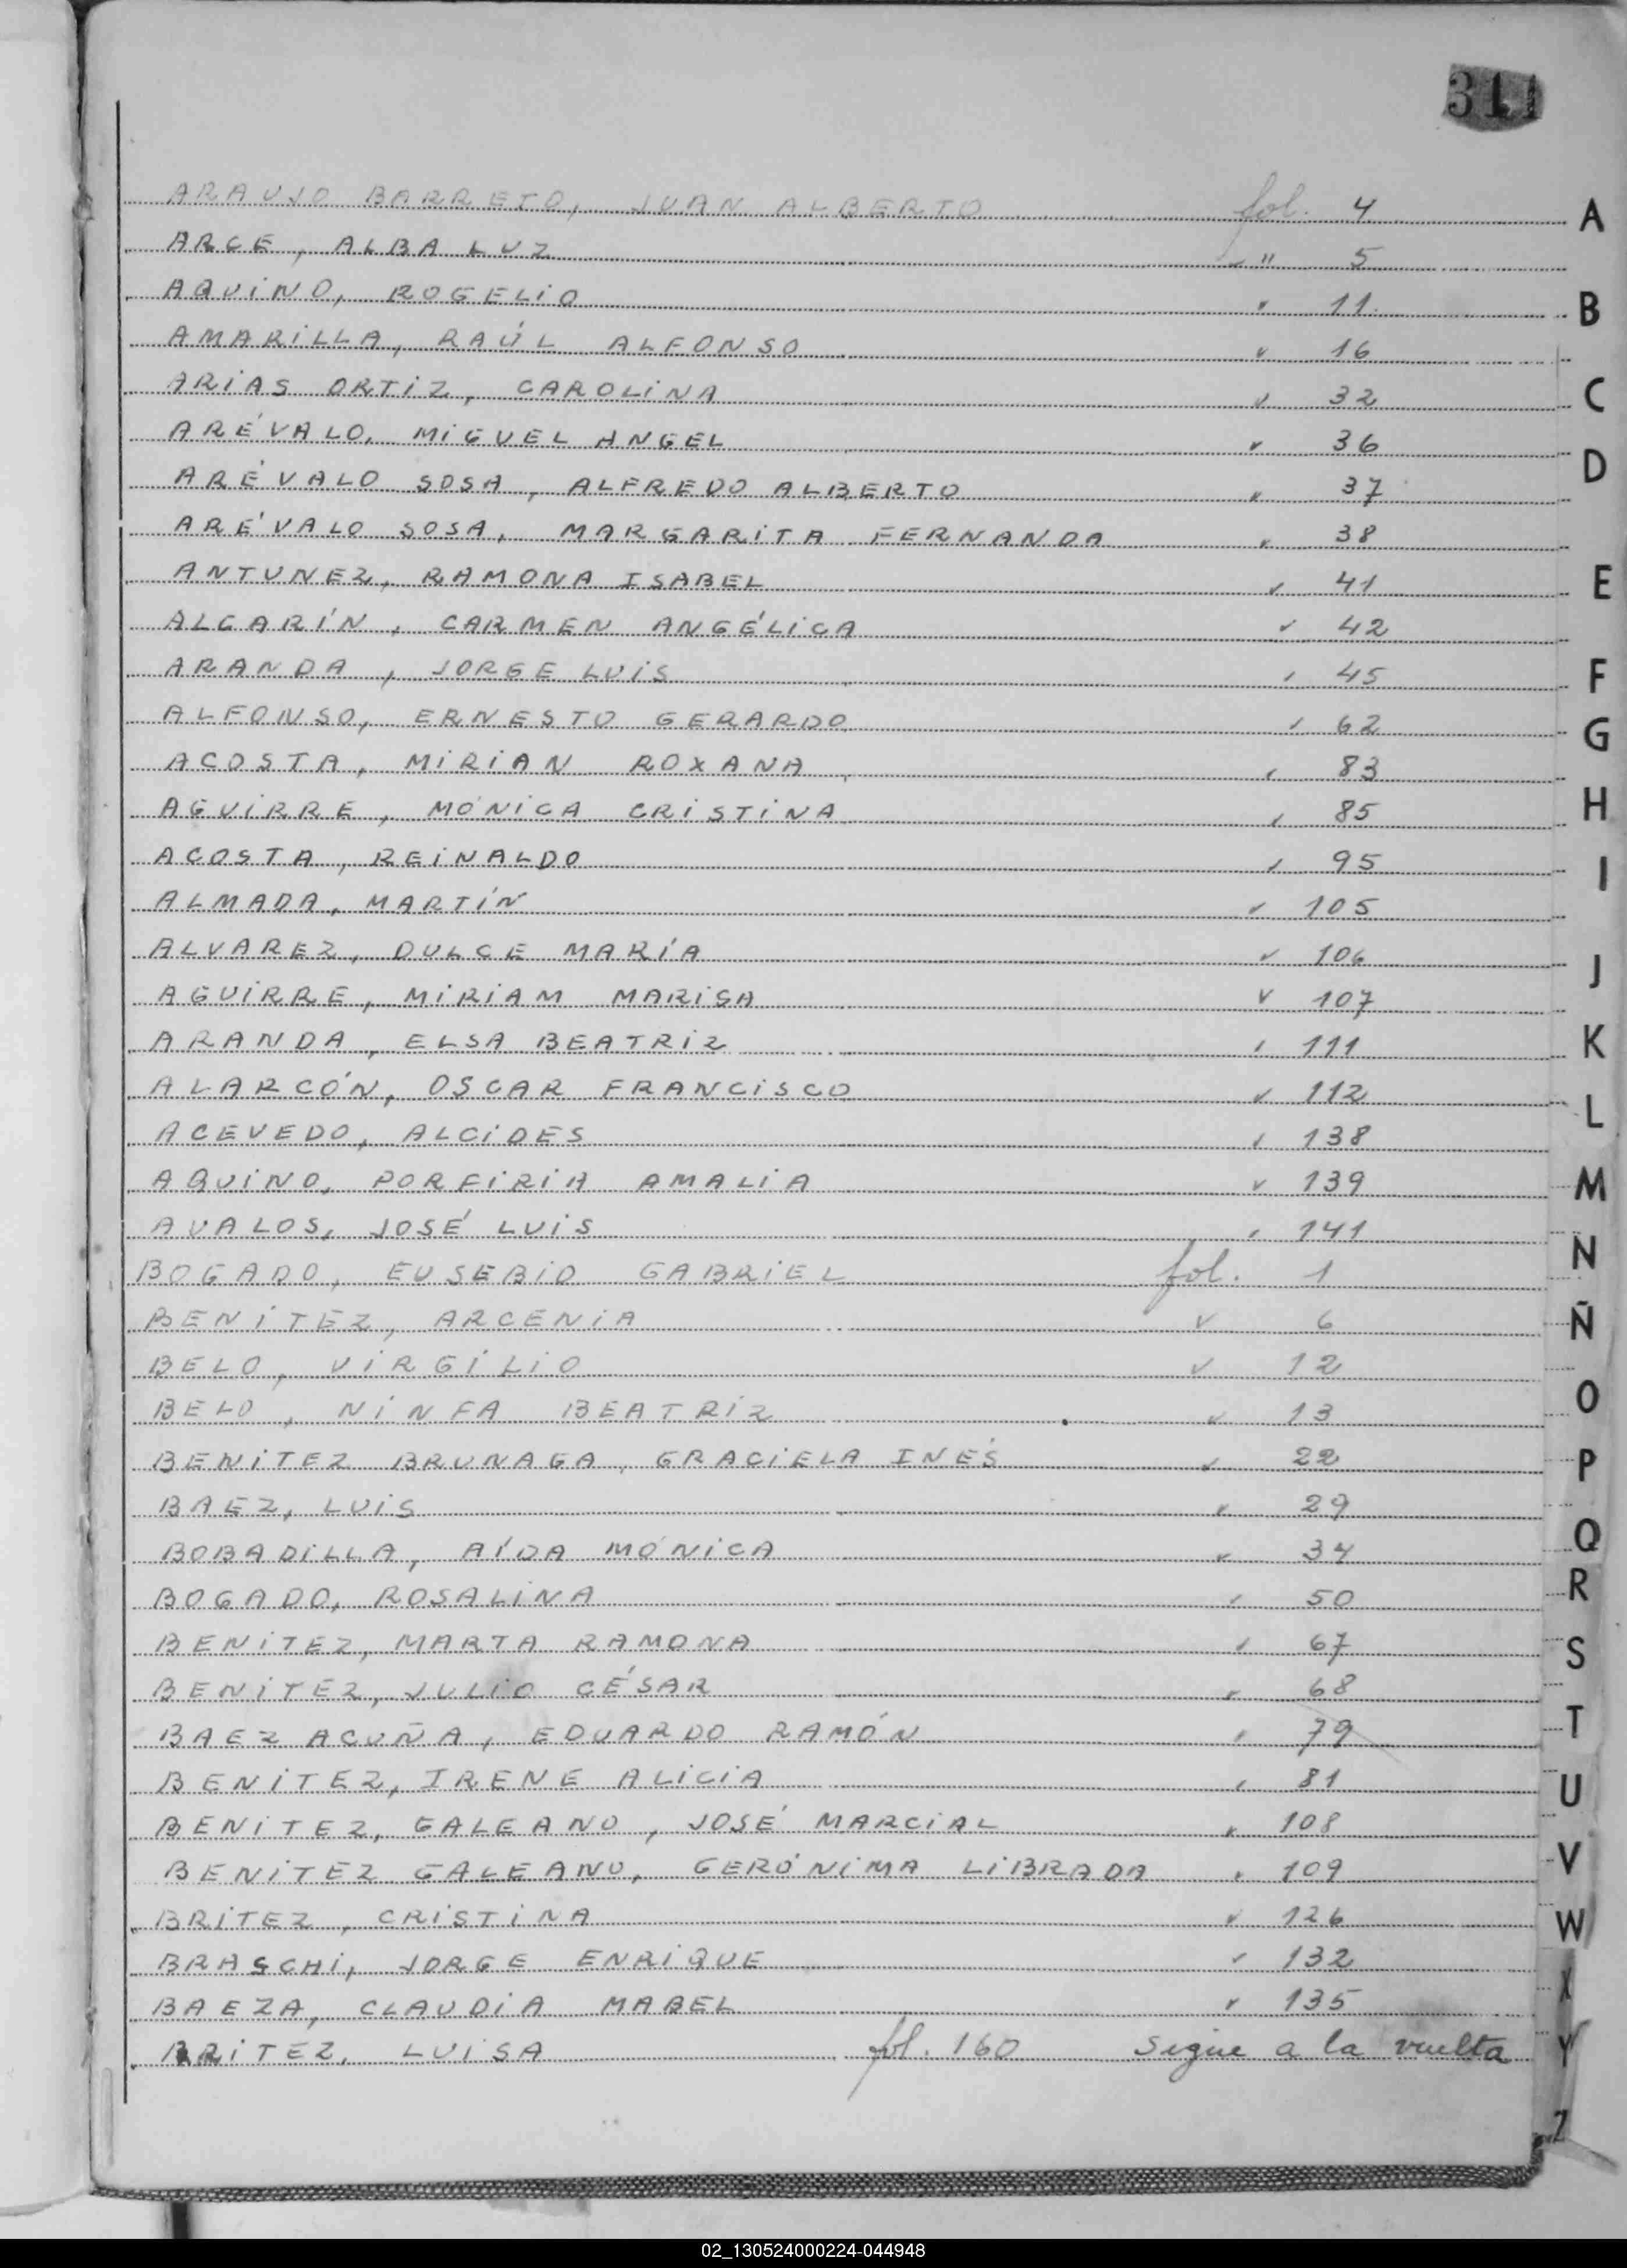 311
ARAUJO BARRETO, JUAN ALBERTO fol. 4
ARCE, ALBA LUZ " 5
AQUINO, ROGELIO " 11
AMARILLA, RAÚL ALFONSO " 16
ARIAS ORTIZ, CAROLINA " 32
ARÉVALO, MIGUEL ANGEL " 36
ARÉVALO SOSA, ALFREDO ALBERTO " 37
ARÉVALO SOSA, MARGARITA FERNANDA " 38
ANTUNEZ, RAMONA ISABEL " 41
ALGARÍN, CARMEN ANGÉLICA " 42
ARANDA, JORGE LUIS " 45
ALFONSO, ERNESTO GERARDO " 62
ACOSTA, MIRIAN ROXANA " 83
AGUIRRE, MÓNICA CRISTINA " 85
ACOSTA, REINALDO " 95
ALMADA, MARTÍN " 105
ALVAREZ, DULCE MARÍA " 106
AGUIRRE, MIRIAM MARISA " 107
ARANDA, ELSA BEATRIZ " 111
ALARCÓN, OSCAR FRANCISCO " 112
ACEVEDO, ALCIDES " 138
AQUINO, PORFIRIA AMALIA " 139
AVALOS, JOSÉ LUIS " 141
BOGADO, EUSEBIO GABRIEL fol. 1
BENITEZ, ARCENIA " 6
BELO, VIRGILIO " 12
BELO, NINFA BEATRIZ " 13
BENITEZ BRUNAGA, GRACIELA INÉS " 22
BAEZ, LUIS " 29
BOBADILLA, AÍDA MÓNICA " 34
BOGADO, ROSALINA " 50
BENITEZ, MARTA RAMONA " 67
BENITEZ, JULIO CÉSAR " 68
BAEZ ACUÑA, EDUARDO RAMÓN " 79
BENITEZ, IRENE ALICIA " 81
BENITEZ, GALEANO, JOSÉ MARCIAL " 108
BENITEZ GALEANO, GERÓNIMA LIBRADA " 109
BRITEZ, CRISTINA " 126
BRASCHI, JORGE ENRIQUE " 132
BAEZA, CLAUDIA MABEL " 135
BRITEZ, LUISA fol. 160 Sigue a la vuelta
A
B
C
D
E
F
G
H
I
J
K
L
M
N
Ñ
O
P
Q
R
S
T
U
V
W
X
Y
Z
02_130524000224-044948